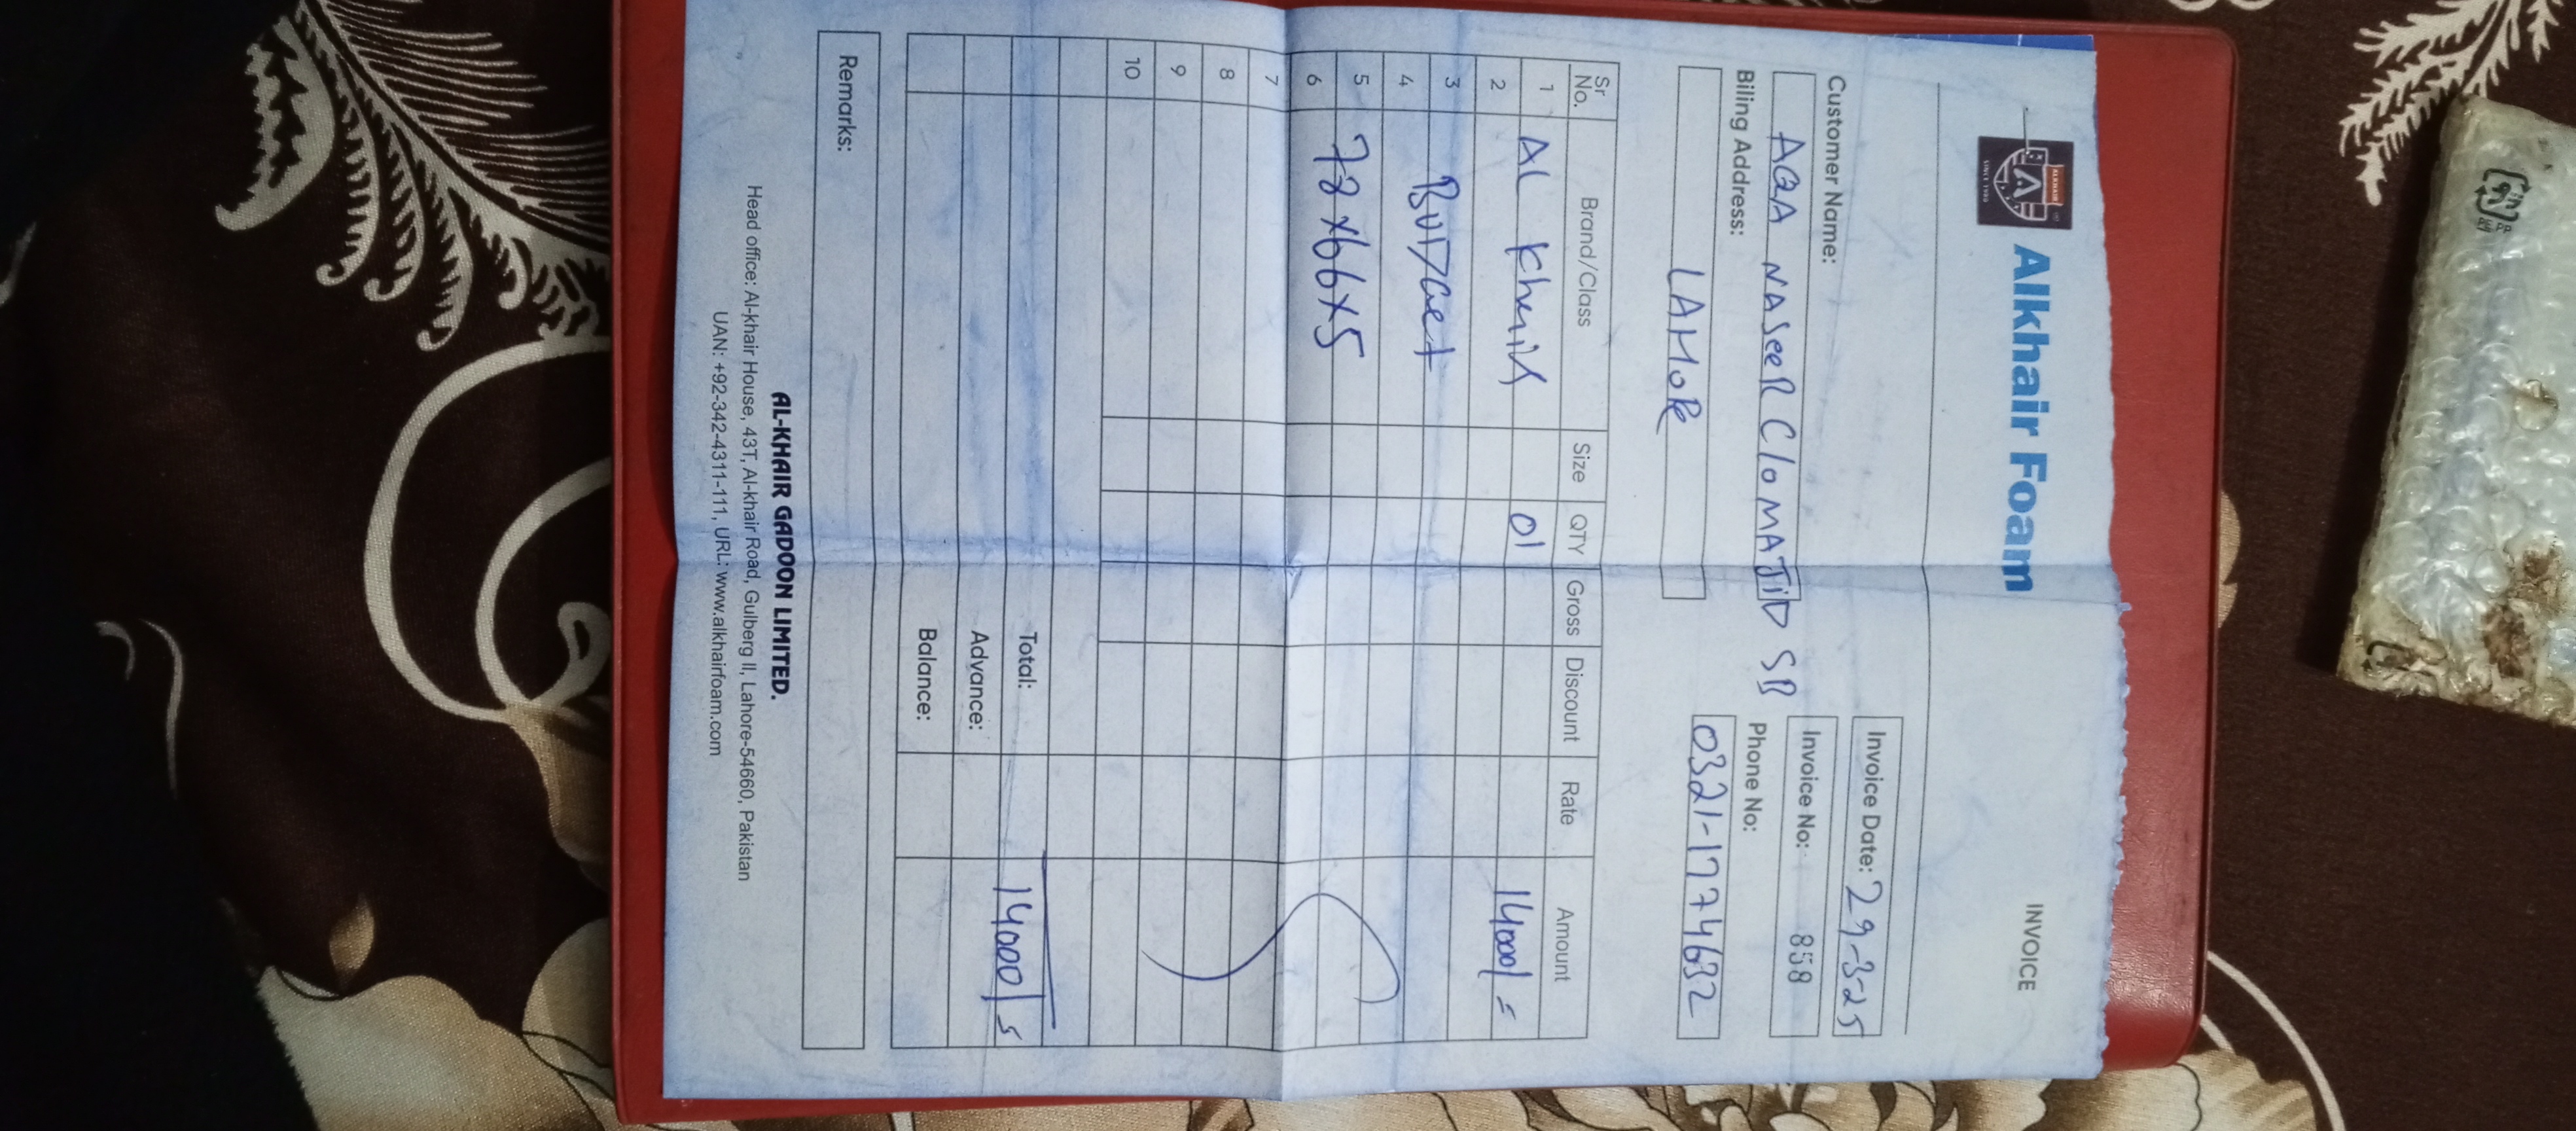 ALKHAIR
SINCE 1980
Alkhair Foam
INVOICE
Invoice Date: 29-3-25
Customer Name:
Invoice No: 858
AQA NASeeR CloMAJiD SB
Biling Address:
Phone No:
LAHoRe
0321-1774632
Sr No. Brand/Class Size QTY Gross Discount Rate Amount
1 AL Khair 01
2 14000/=
3
4
5
6 72x66x5
7
8
9
10
Total: 14000/=
Advance:
Balance:
Remarks:
AL-KHAIR GADOON LIMITED.
Head office: Al-khair House, 43T, Al-khair Road, Gulberg II, Lahore-54660, Pakistan
UAN: +92-342-4311-111, URL: www.alkhairfoam.com